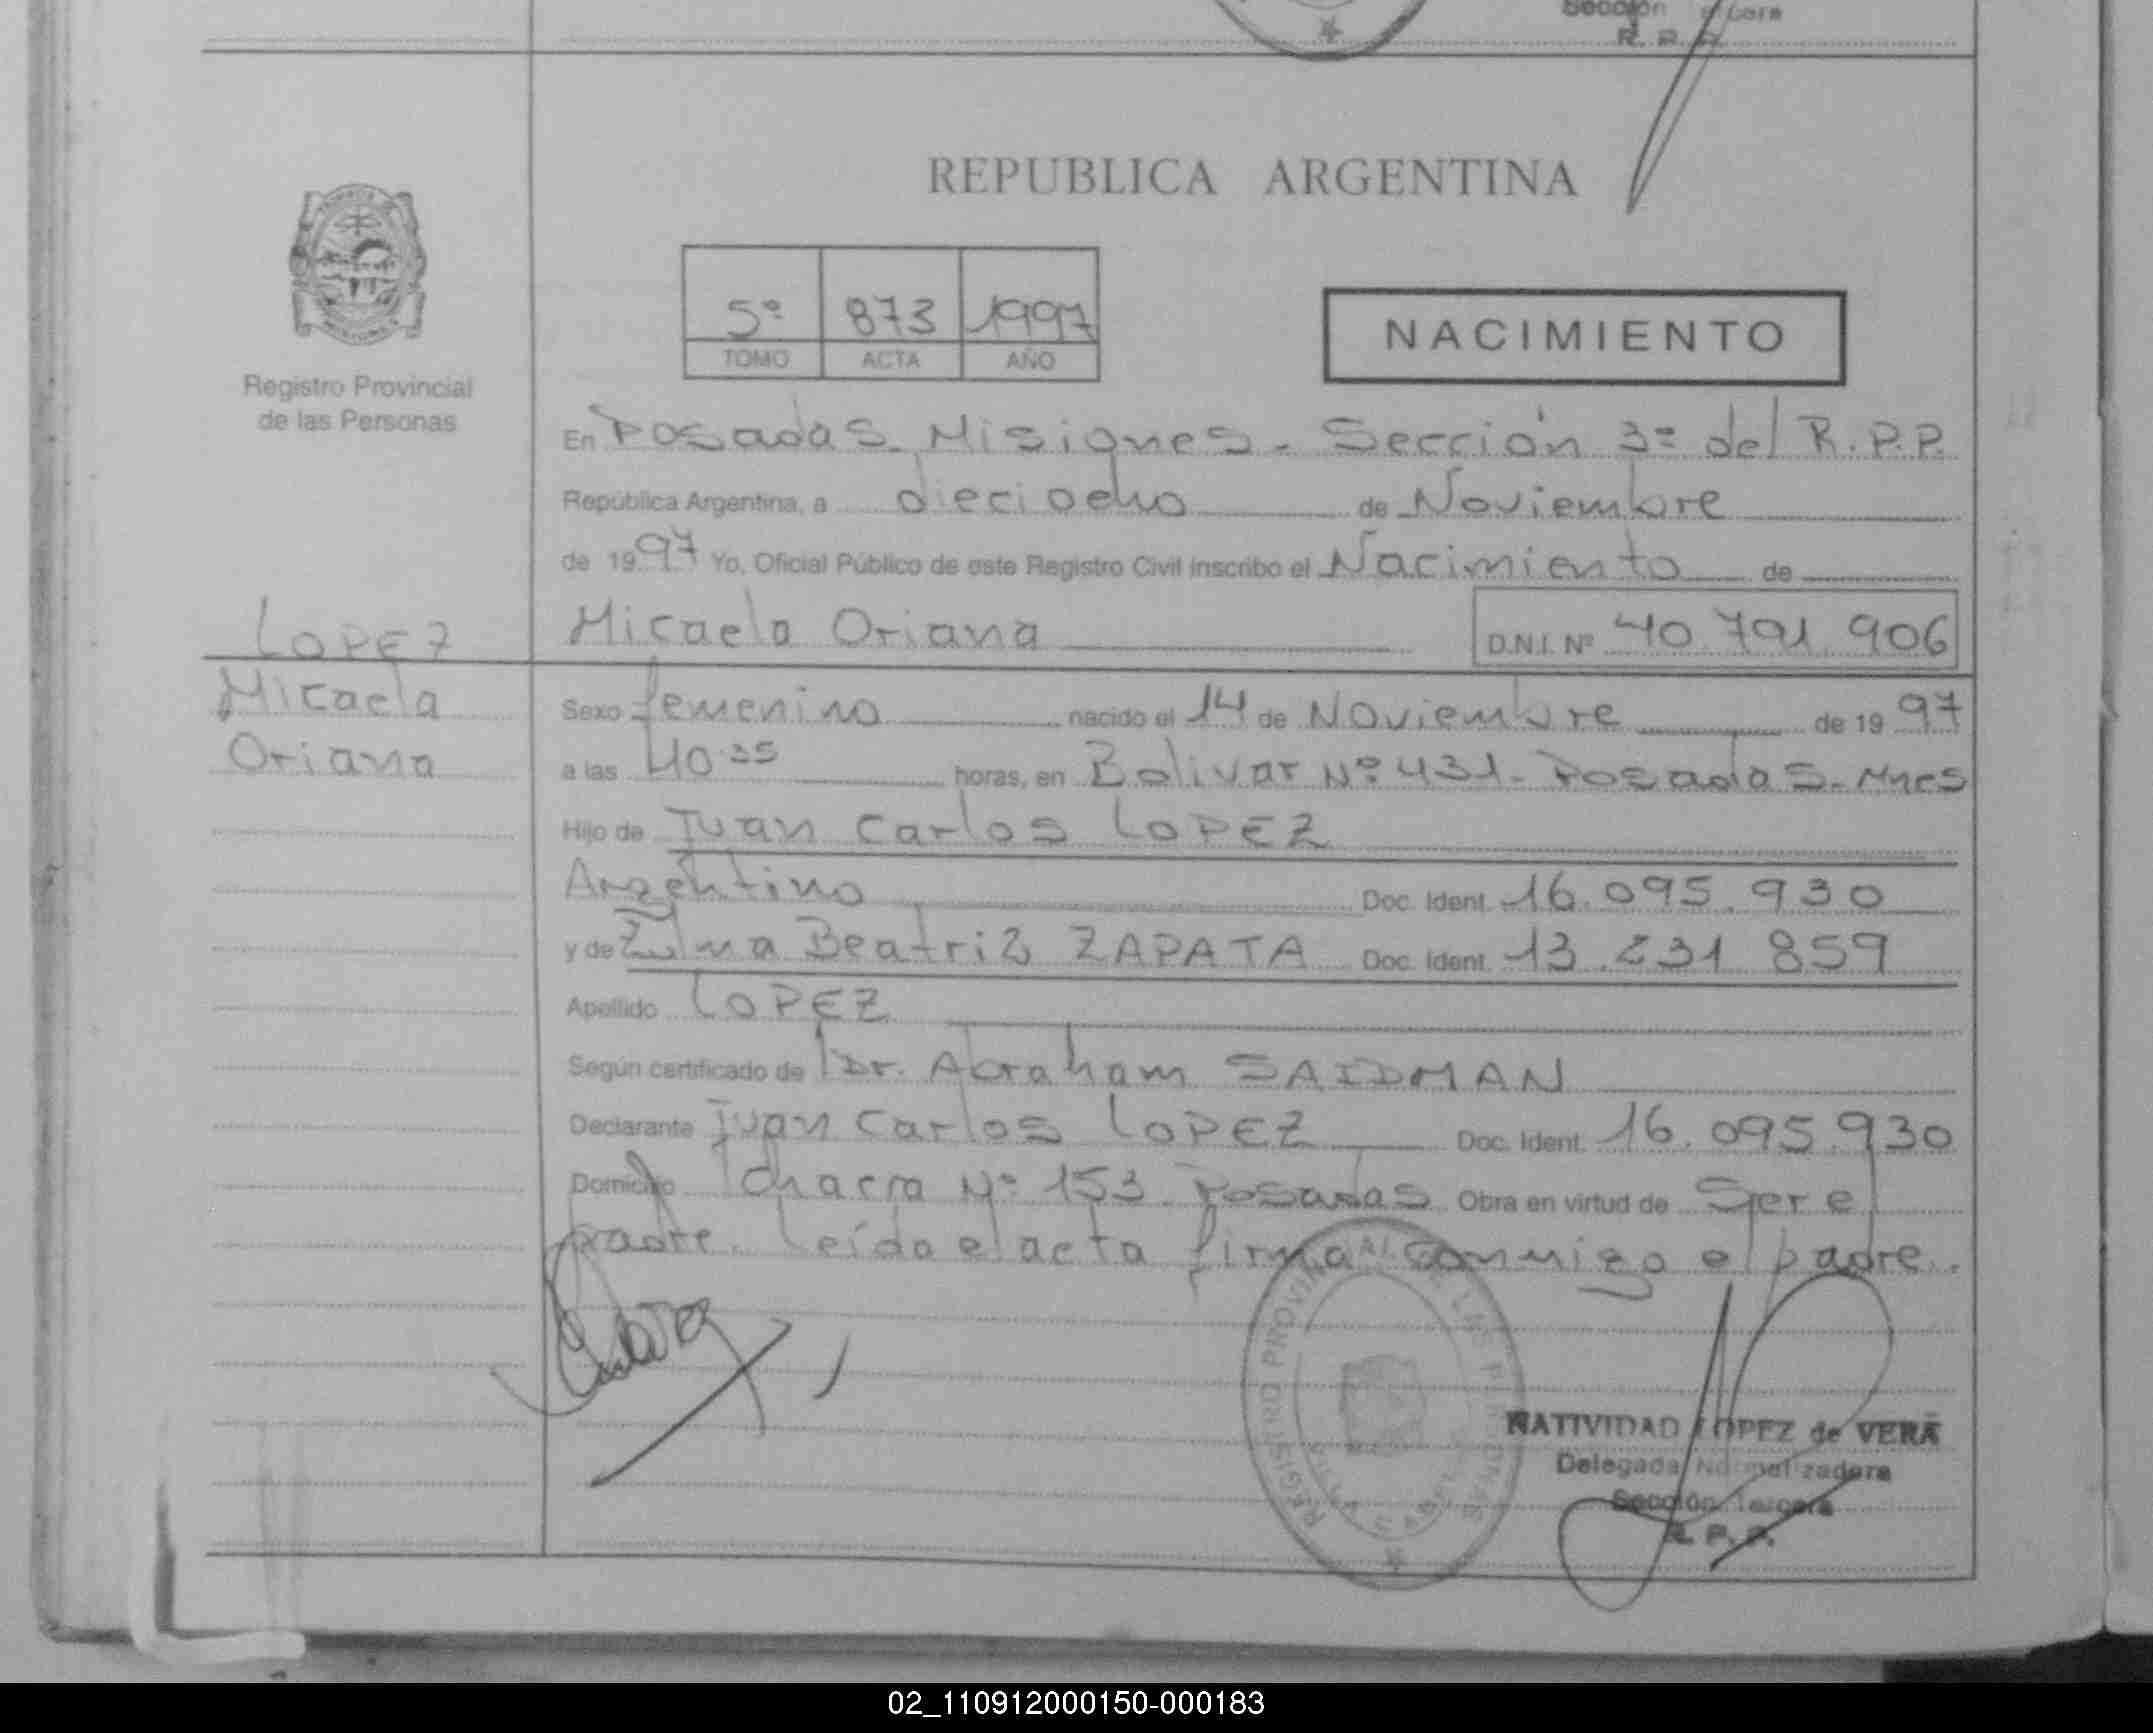 Sección
R. P. P.
REPUBLICA ARGENTINA
5º 873 1997
TOMO ACTA AÑO
NACIMIENTO
Registro Provincial
de las Personas
En Posadas. Misiones - Sección 3ª del R.P.P.
República Argentina, a dieciocho de Noviembre
de 1997 Yo, Oficial Público de este Registro Civil inscribo el Nacimiento de
Micaela Oriana D.N.I. Nº 40.791.906
LOPEZ
Micaela
Oriana
Sexo femenino nacido el 14 de Noviembre de 1997
a las horas, en Bolivar Nº 431- Posadas.- Mnes
Hijo de Juan Carlos LOPEZ
Argentino Doc. Ident. 16.095.930
y de Zulma Beatriz ZAPATA Doc. Ident. 13.231 859
Apellido LOPEZ
Según certificado de Dr. Abraham SAIDMAN
Declarante Juan Carlos LOPEZ Doc. Ident. 16.095.930
Domicilio Chacra Nº 153 Posadas Obra en virtud de Ser el
padre. Leída el acta firma conmigo el padre.
REGISTRO PROVINCIAL DE LAS PERSONAS
NATIVIDAD LOPEZ de VERA
Delegada Normalizadora
Sección Tercera
R. P. P.
02_110912000150-000183